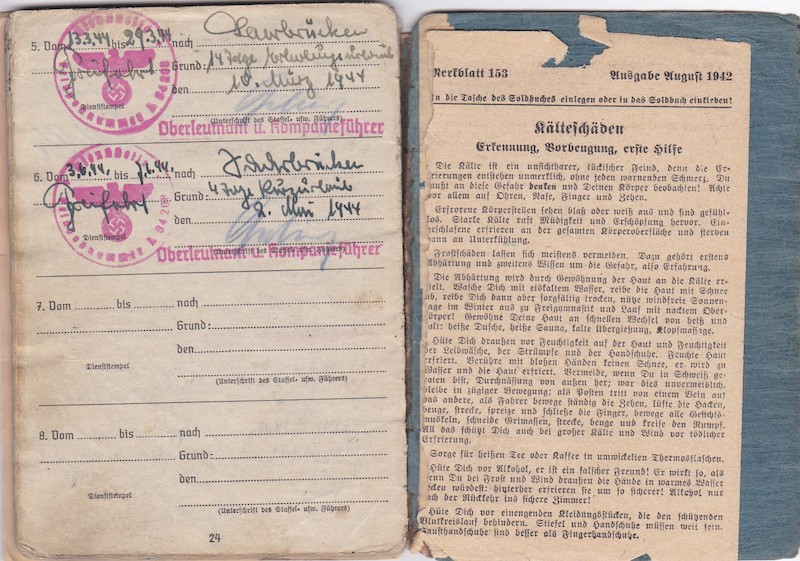 5. Vom 13.3.44 bis 29.3.44 nach Saarbrücken
Freifahrt Grund: 14 Tage Erholungsurlaub
den 10. März 1944
Dienststempel
(Unterschrift des Staffel- usw. Führers)
Oberleutnant u. Kompanieführer
6. Vom 3.6.44. bis nach Saarbrücken
Freifahrt Grund: 4 Tage Kurzurlaub
den 2. 1944
Dienststempel
Oberleutnant u. Kompanieführer
7. Vom bis nach
Grund:
den
Dienststempel
(Unterschrift des Staffel- usw. Führers)
8. Vom bis nach
Grund:
den
Dienststempel
(Unterschrift des Staffel- usw. Führers)
24
Merkblatt 153 Ausgabe August 1942
in die Tasche des Soldbuches einlegen oder in das Soldbuch einkleben!
Kälteschäden
Erkennung, Vorbeugung, erste Hilfe
Die Kälte ist ein unsichtbarer, tückischer Feind, denn die Er-
frierungen entstehen unmerklich, ohne jeden warnenden Schmerz. Du
mußt an diese Gefahr denken und Deinen Körper beobachten! Achte
vor allem auf Ohren, Nase, Finger und Zehen.
Erfrorene Körperstellen sehen blaß oder weiß aus und sind gefühl-
los. Starke Kälte ruft Müdigkeit und Erschöpfung hervor. Ein-
geschlafene erfrieren an der gesamten Körperoberfläche und sterben
dann an Unterkühlung.
Frostschäden lassen sich meistens vermeiden. Dazu gehört erstens
Abhärtung und zweitens Wissen um die Gefahr, also Erfahrung.
Die Abhärtung wird durch Gewöhnung der Haut an die Kälte er-
zielt. Wasche Dich mit eiskaltem Wasser, reibe die Haut mit Schnee
ab, reibe Dich dann aber sorgfältig trocken, nütze windfreie Sonnen-
tage im Winter aus zu Freigymnastik und Lauf mit nacktem Ober-
körper! Gewöhne Deine Haut an schnellen Wechsel von heiß und
kalt: heiße Dusche, heiße Sauna, kalte Übergießung, Klopfmassage.
Hüte Dich draußen vor Feuchtigkeit auf der Haut und Feuchtigkeit
der Leibwäsche, der Strümpfe und der Handschuhe. Feuchte Haut
erfriert. Berühre mit bloßen Händen keinen Schnee, er wird zu
Wasser und die Haut erfriert. Vermeide, wenn Du in Schweiß ge-
raten bist, Durchnässung von außen her; war dies unvermeidlich,
bleibe in zügiger Bewegung; als Posten tritt von einem Bein auf
das andere, als Fahrer bewege ständig die Zehen, lüfte die Hacken,
beuge, strecke, spreize und schließe die Finger, bewege alle Gesichts-
muskeln, schneide Grimassen, strecke, beuge und kreise den Rumpf.
All das schützt Dich auch bei großer Kälte und Wind vor tödlicher
Erfrierung.
Sorge für heißen Tee oder Kaffee in umwickelten Thermosflaschen.
Hüte Dich vor Alkohol, er ist ein falscher Freund! Er wirkt so, als
wenn Du bei Frost und Wind draußen die Hände in warmes Wasser
stecken würdest: hinterher erfrieren sie um so sicherer! Alkohol nur
nach der Rückkehr ins sichere Zimmer!
Hüte Dich vor einengenden Kleidungsstücken, die den schützenden
Blutkreislauf behindern. Stiefel und Handschuhe müssen weit sein.
Fausthandschuhe sind besser als Fingerhandschuhe.